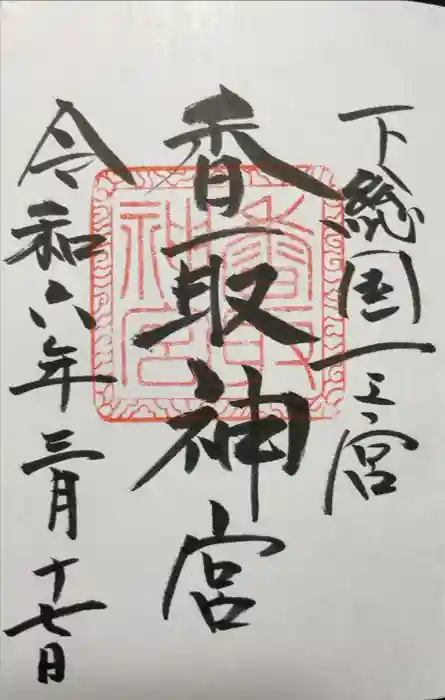 下総国一之宮
香取神宮
令和六年三月十七日
香取神宮